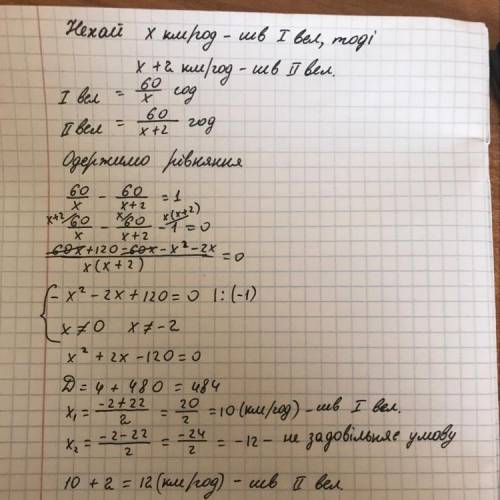 Нехай x км/год - шв I вел, тоді
x + 2 км/год - шв II вел.
I вел = 60/x год
II вел = 60/(x+2) год
Одержимо рівняння
60/x - 60/(x+2) = 1
x+2/ 60/x - x/ 60/(x+2) - x(x+2)/ 1 = 0
(60x + 120 - 60x - x² - 2x)/(x(x+2)) = 0
{ - x² - 2x + 120 = 0 | : (-1)
x ≠ 0 x ≠ -2
x² + 2x - 120 = 0
D = 4 + 480 = 484
x₁ = (-2+22)/2 = 20/2 = 10 (км/год) - шв I вел.
x₂ = (-2-22)/2 = -24/2 = -12 - не задовільняє умову
10 + 2 = 12 (км/год) - шв II вел